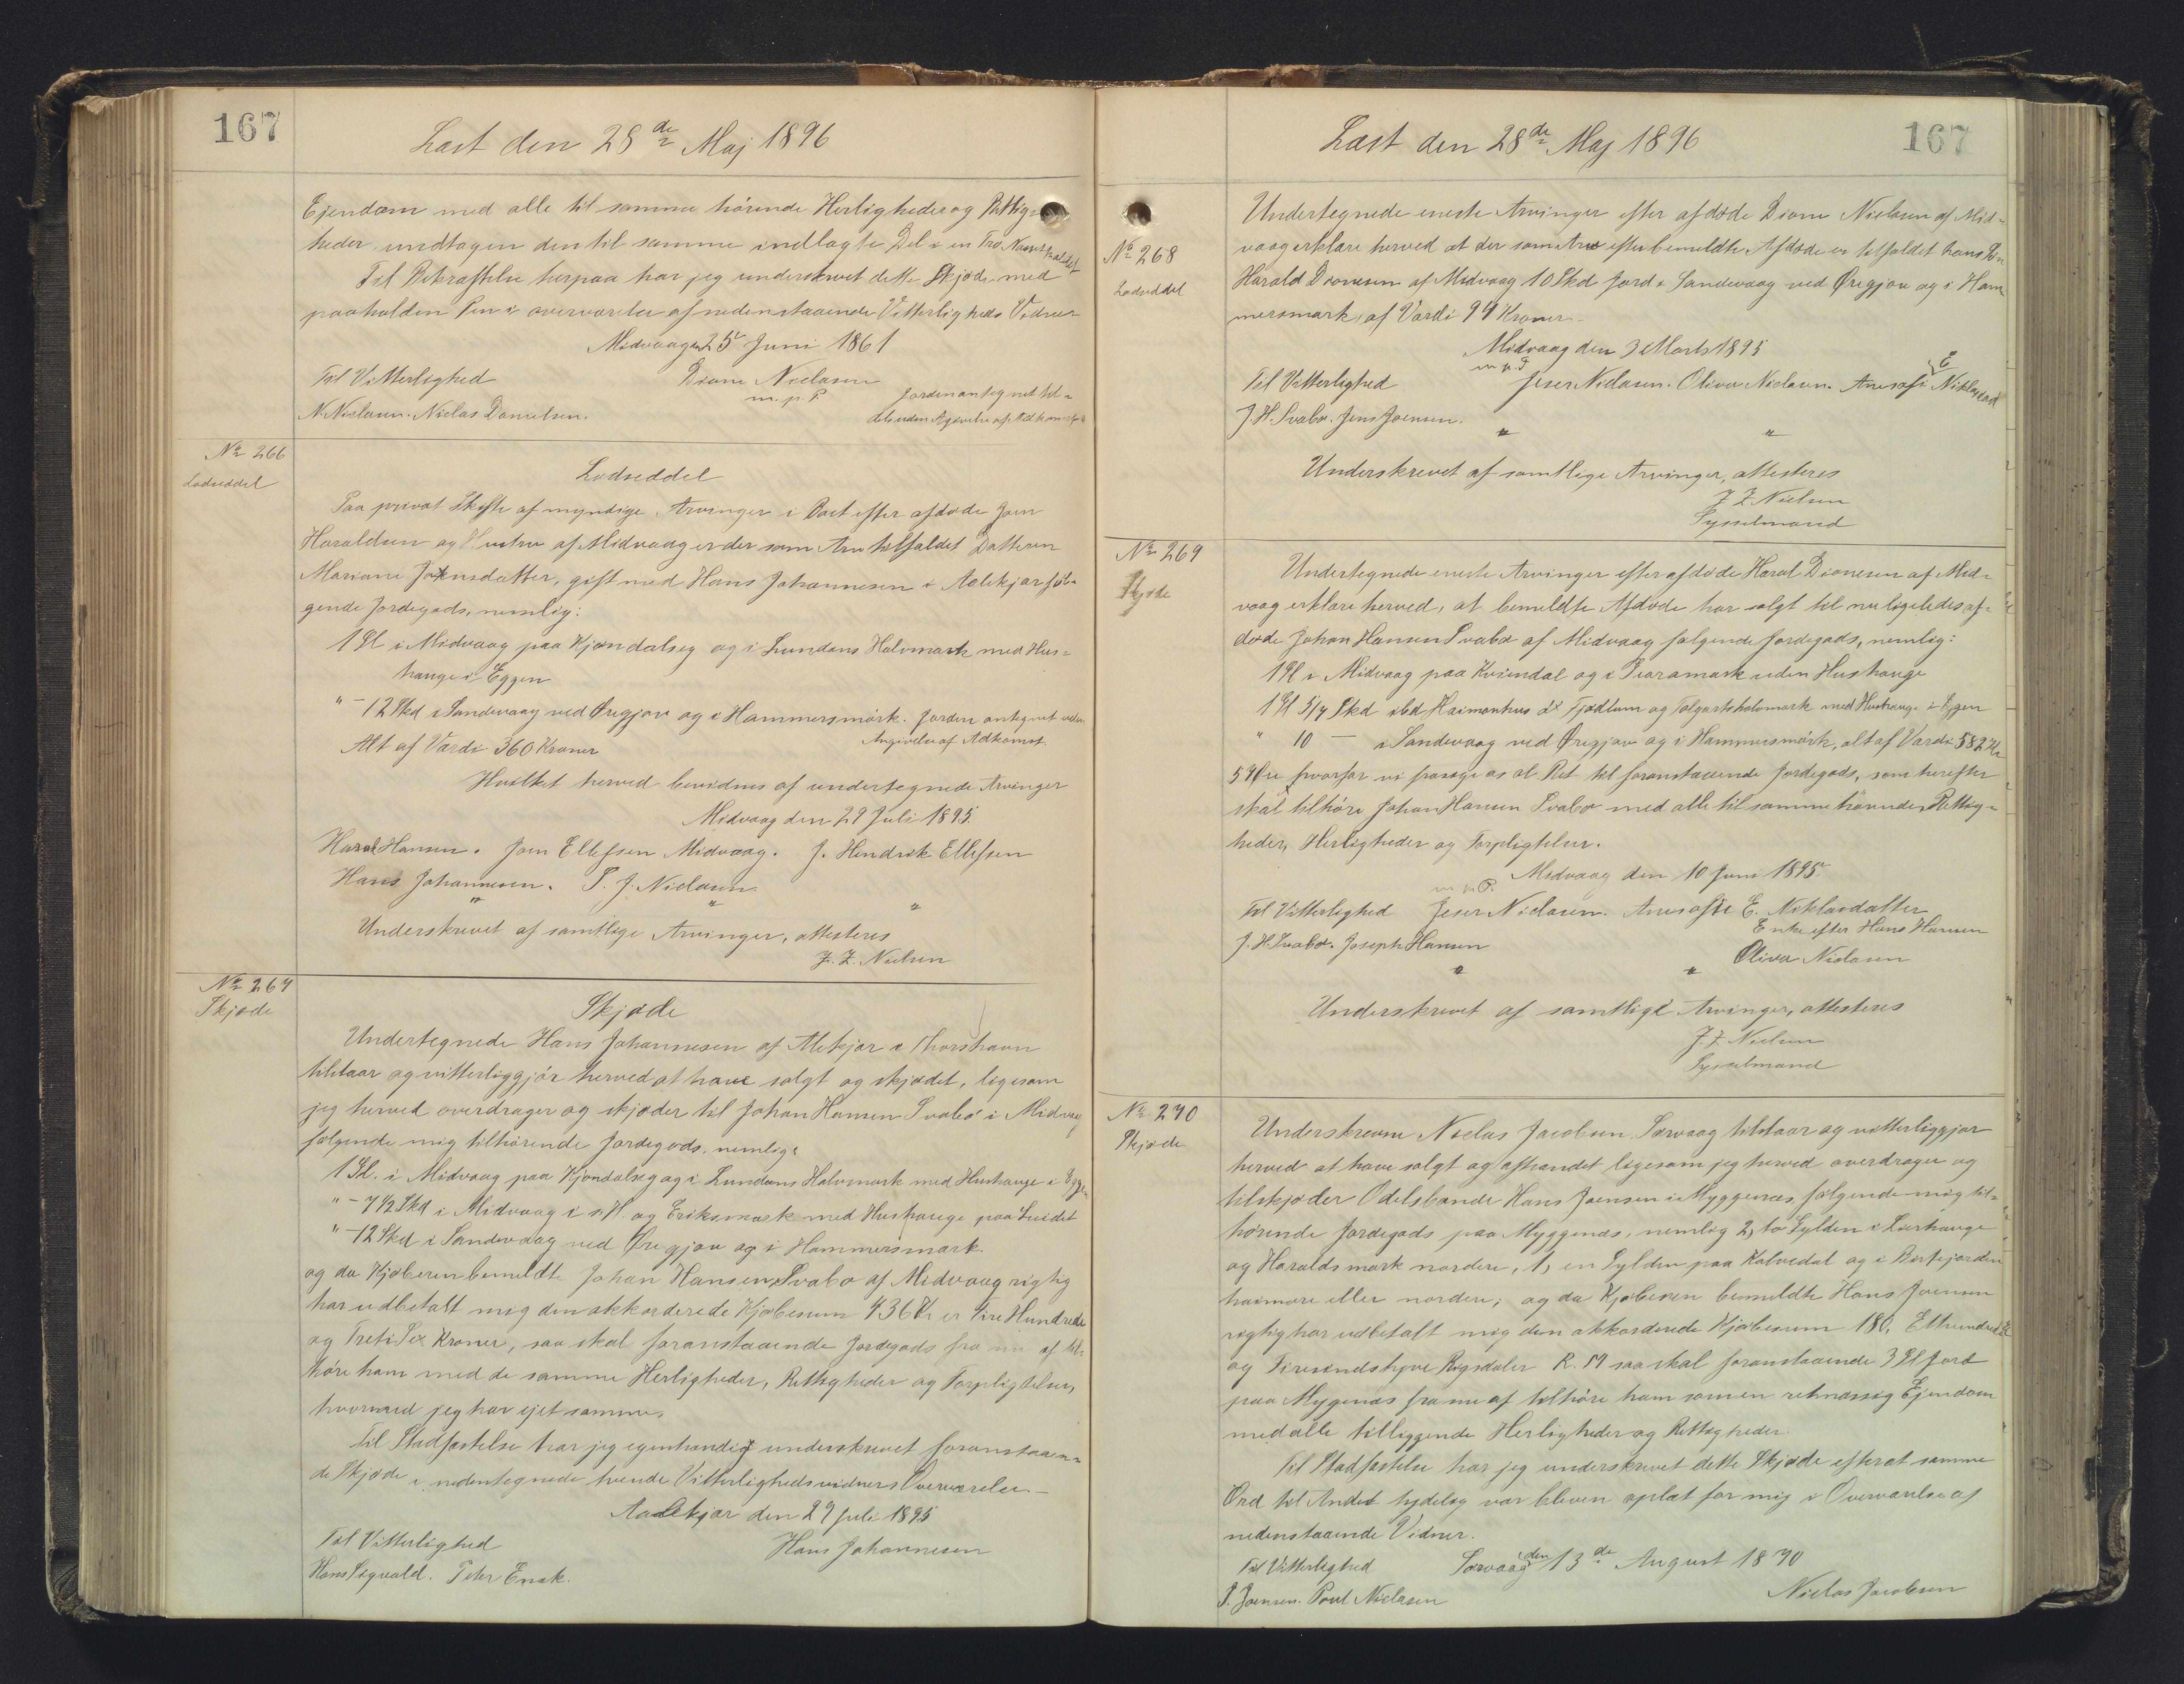 167
Læst den 28de Maj 1896
Ejendom med alle til samme hörende Herligheder og Rettig-
heder undtagen den til samme indlagte Del i en Trö
Til Bekræftelse herpaa har jeg underskrevet dette Skjöde med
paaholden Pen i overværelse af nedenstaaende Vitterligheds Vidner
Midvaag den 25 Juni 1861
Til Vitterlighed Dion Nielasen
m. p. P
N. Nielasen. Niclas Danielsen.
Jorden antegnet til-
dels uden Angivelse af Adkomst
No 266
Lodseddel
Lodseddel
Paa privat Skifte af myndige Arvinger i Boet efter afdøde Joen
Haraldsen og Hustru af Midvaag er der som Arv tilfaldet Datteren
Mariane Joensdatter, gift med Hans Johannesen i Aalekjær føl-
gende Jordegods, nemlig:
1 Gl i Midvaag paa Kjøndalseg og i Lundans Halvmark med Hus-
hauge i Eggen
" - 12 Skd i Sandevaag ved Öregjov og i Hammersmörk. Jorden antegnet uden
Angivelse af Adkomst
Alt af Værdi 360 Kroner
Hvilket herved bevidnes af undertegnede Arvinger
Midvaag den 29 Juli 1895.
Haral Hansen. Joen Ellefsen Midvaag. J. Hendrik Ellefsen
Hans Johannesen. P. J. Nielasen
" " "
Underskrevet af samtlige Arvinger, attesteres
J. Z. Nielsen
No 267
Skjøde
Skjøde
Undertegnede Hans Johannesen af Alekjær i Thorshavn
tilstaar og vitterliggjör herved at have solgt og skjødet, ligesom
jeg herved overdrager og skjøder til Johan Hansen Svabø i Midvaag
følgende mig tilhørende Jordegods, nemlig:
1 Gl. i Midvaag paa Kjøndalseg og i Lundans Halvmark med Hushauge i Eggen
" - 7 1/2 Skd i Midvaag i s. H. og Eriksmark med Hushauge paa
" - 12 Skd i Sandevaag ved Öregjov og i Hammersmark
og da Kjøberen bemeldte Johan Hansen Svabø af Midvaag rigtig
har udbetalt mig den akkorderede Kjøbesum 436 Kr er Fire Hundrede
og Treti Sex Kroner, saa skal foranstaaende Jordegods fra nu af til-
höre ham med de samme Herligheder, Rettigheder og Forpligtelser,
hvormed jeg har ejet samme.
Til Stadfæstelse har jeg egenhændig underskrevet foranstaaen-
de Skjøde i nedentegnede tvende Vitterlighedsvidners Overværelse.
Aalekjær den 29 Juli 1895
Til Vitterlighed Hans Johannesen
Hans Sigvald. Peter Enok.
Læst den 28de Maj 1896
167
No 268
Lodseddel
Undertegnede eneste Arvinger efter afdøde Dion Nielasen af Mid-
vaag erklære herved at der som Arv efter bemeldte Afdøde er tilfaldet hans Søn
Harald Dionesen af Midvaag 10 Skd Jord i Sandevaag ved Øregjov og i Ham
mersmark, af Værdi 99 Kroner
Midvaag den 3 Marts 1895
m. p. P
Til Vitterlighed Jeser Nielasen. Oliva Nielasen. Anesofie E Niklasdatt
J. H. Svabø. Jens Joensen.
" "
Underskrevet af samtlige Arvinger, attesteres
J Z Nielsen
Sysselmand
No 269
Skjøde
Undertegnede eneste Arvinger efter afdøde Haral Dionesen af Mid-
vaag erklære herved, at bemeldte Afdøde har solgt til nu ligeledes af-
døde Johan Hansen Svabø af Midvaag følgende Jordegods, nemlig:
1 Gl i Midvaag paa Kvivendal og i Pearamark uden Hushauge
1 Gl 5 1/4 Skd ibd Heimanhus i Fjødlum og Tolgartshalvmark med Hushauge i Eggen
" 10 — i Sandevaag ved Øregjov og i Hammersmörk, alt af Værdi 582 Kr
54 Øre hvorfor vi frasige os al Ret til foranstaaende Jordegods, som herefter
skal tilhöre Johan Hansen Svabø med alle til samme hörende Rettig-
heder, Herligheder og Forpligtelser.
Midvaag den 10 Juni 1895
m. p. P.
Til Vitterlighed Jeser Nielasen. Anesofie E. Niklasdatter
Enke efter Hans Hansen
J. H. Svabø. Joseph Hansen
Oliva Nielasen
" "
Underskrevet af samtlige Arvinger, attesteres
J. Z. Nielsen
Sysselmand
No 270
Skjøde
Underskrevne Nielas Jacobsen Sørvaag tilstaar og vitterliggjør
herved at have solgt og afhændet ligesom jeg herved overdrager og
tilskjøder Odelsbonde Hans Joensen i Myggenæs, følgende mig til-
hörende Jordegods paa Myggenæs, nemlig 2, to Gylden i Lærhauge
og Haraldsmark nordere, 1, en Gylden paa Kalvedal og i Børkejorden
heimare eller nordere; og da Kjøberen bemeldte Hans Joensen
rigtig har udbetalt mig den akkorderede Kjøbesum 180, Ethundrede
og Firesindstyve Rigsdaler R. M saa skal foranstaaende 3 Gl Jord
paa Mygenæs fra nu af tilhöre ham som en retmæssig Ejendom
med alle tilliggende Herligheder og Rettigheder.
Til Stadfæstelse har jeg underskrevet dette Skjøde efterat samme
Ord til Andet tydelig var bleven oplæst for mig i Overværelse af
nedenstaaende Vidner.
Til Vitterlighed Sørvaag den 13de August 1870
J. Joensen. Poul Nielasen Nielas Jacobsen